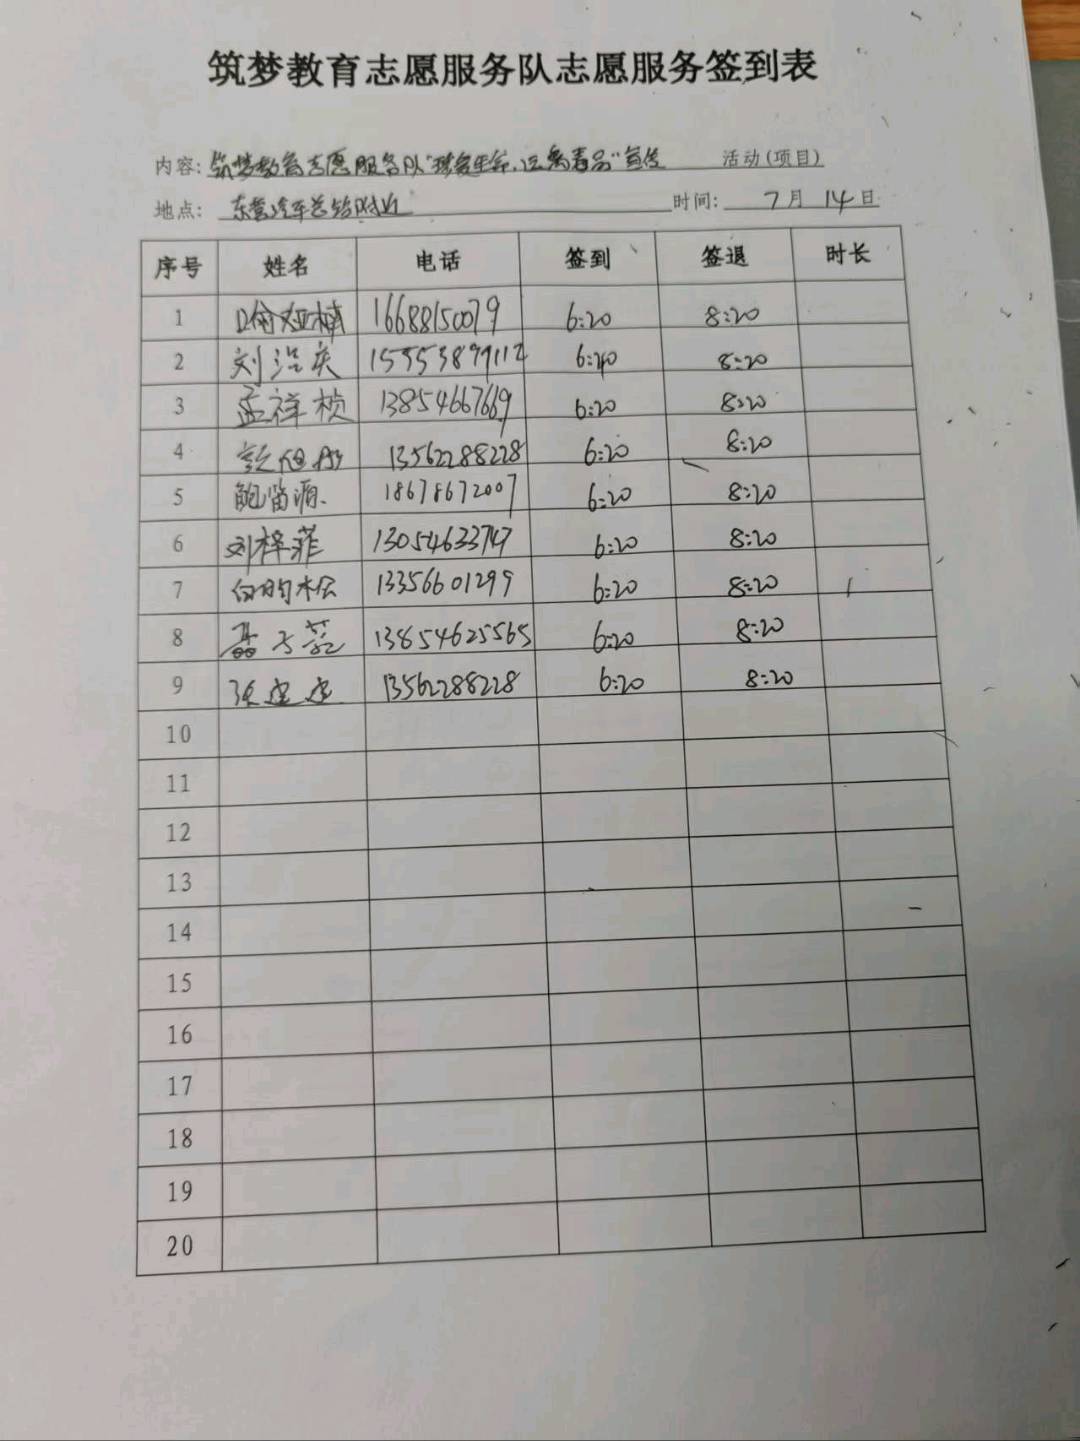 筑梦教育志愿服务队志愿服务签到表
内容: 筑梦教育志愿服务队"珍爱生命,远离毒品"宣传 活动(项目)
地点: 东营汽车总站附近 时间: 7月14日
序号 姓名 电话 签到 签退 时长
1 16688150079 6:20 8:20
2 刘浩庆 15553899112 6:20 8:20
3 孟祥桢 13854667669 6:20 8:20
4 13562288228 6:20 8:20
5 鲍笛源 18678672007 6:20 8:20
6 刘梓菲 13054633747 6:20 8:20
7 13356601299 6:20 8:20
8 13854625565 6:20 8:20
9 13562288228 6:20 8:20
10
11
12
13
14
15
16
17
18
19
20